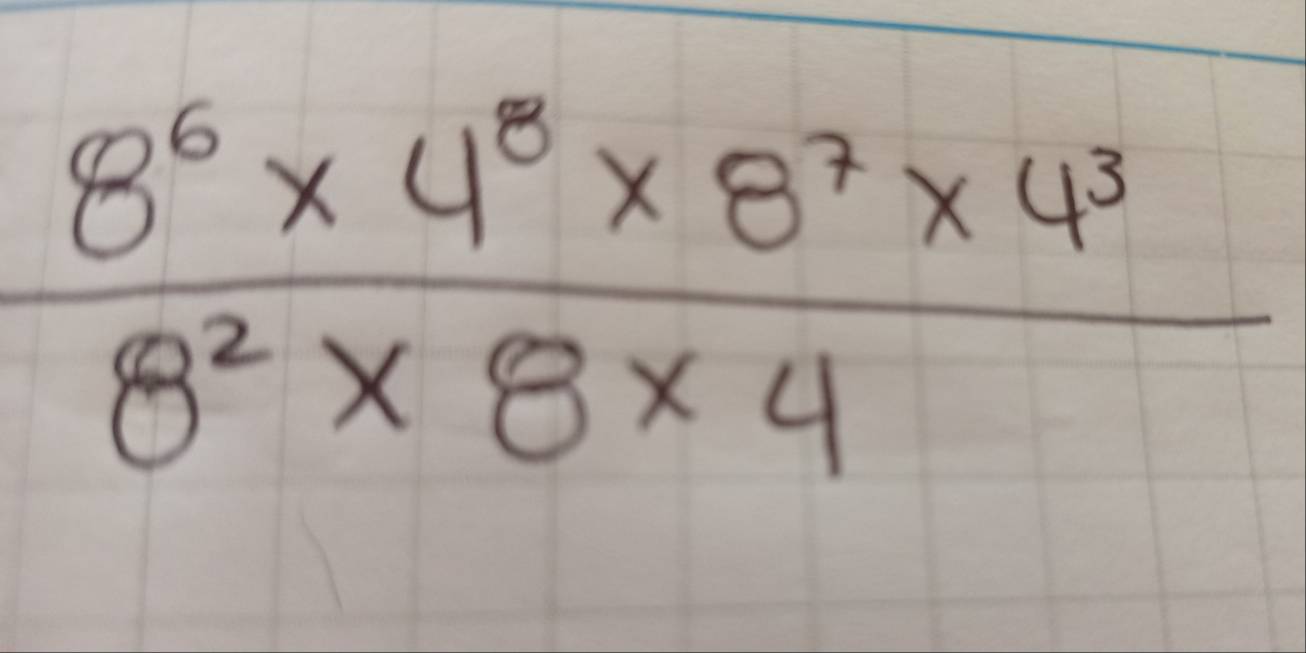 8⁶ × 4⁸ × 8⁷ × 4³
8² × 8 × 4